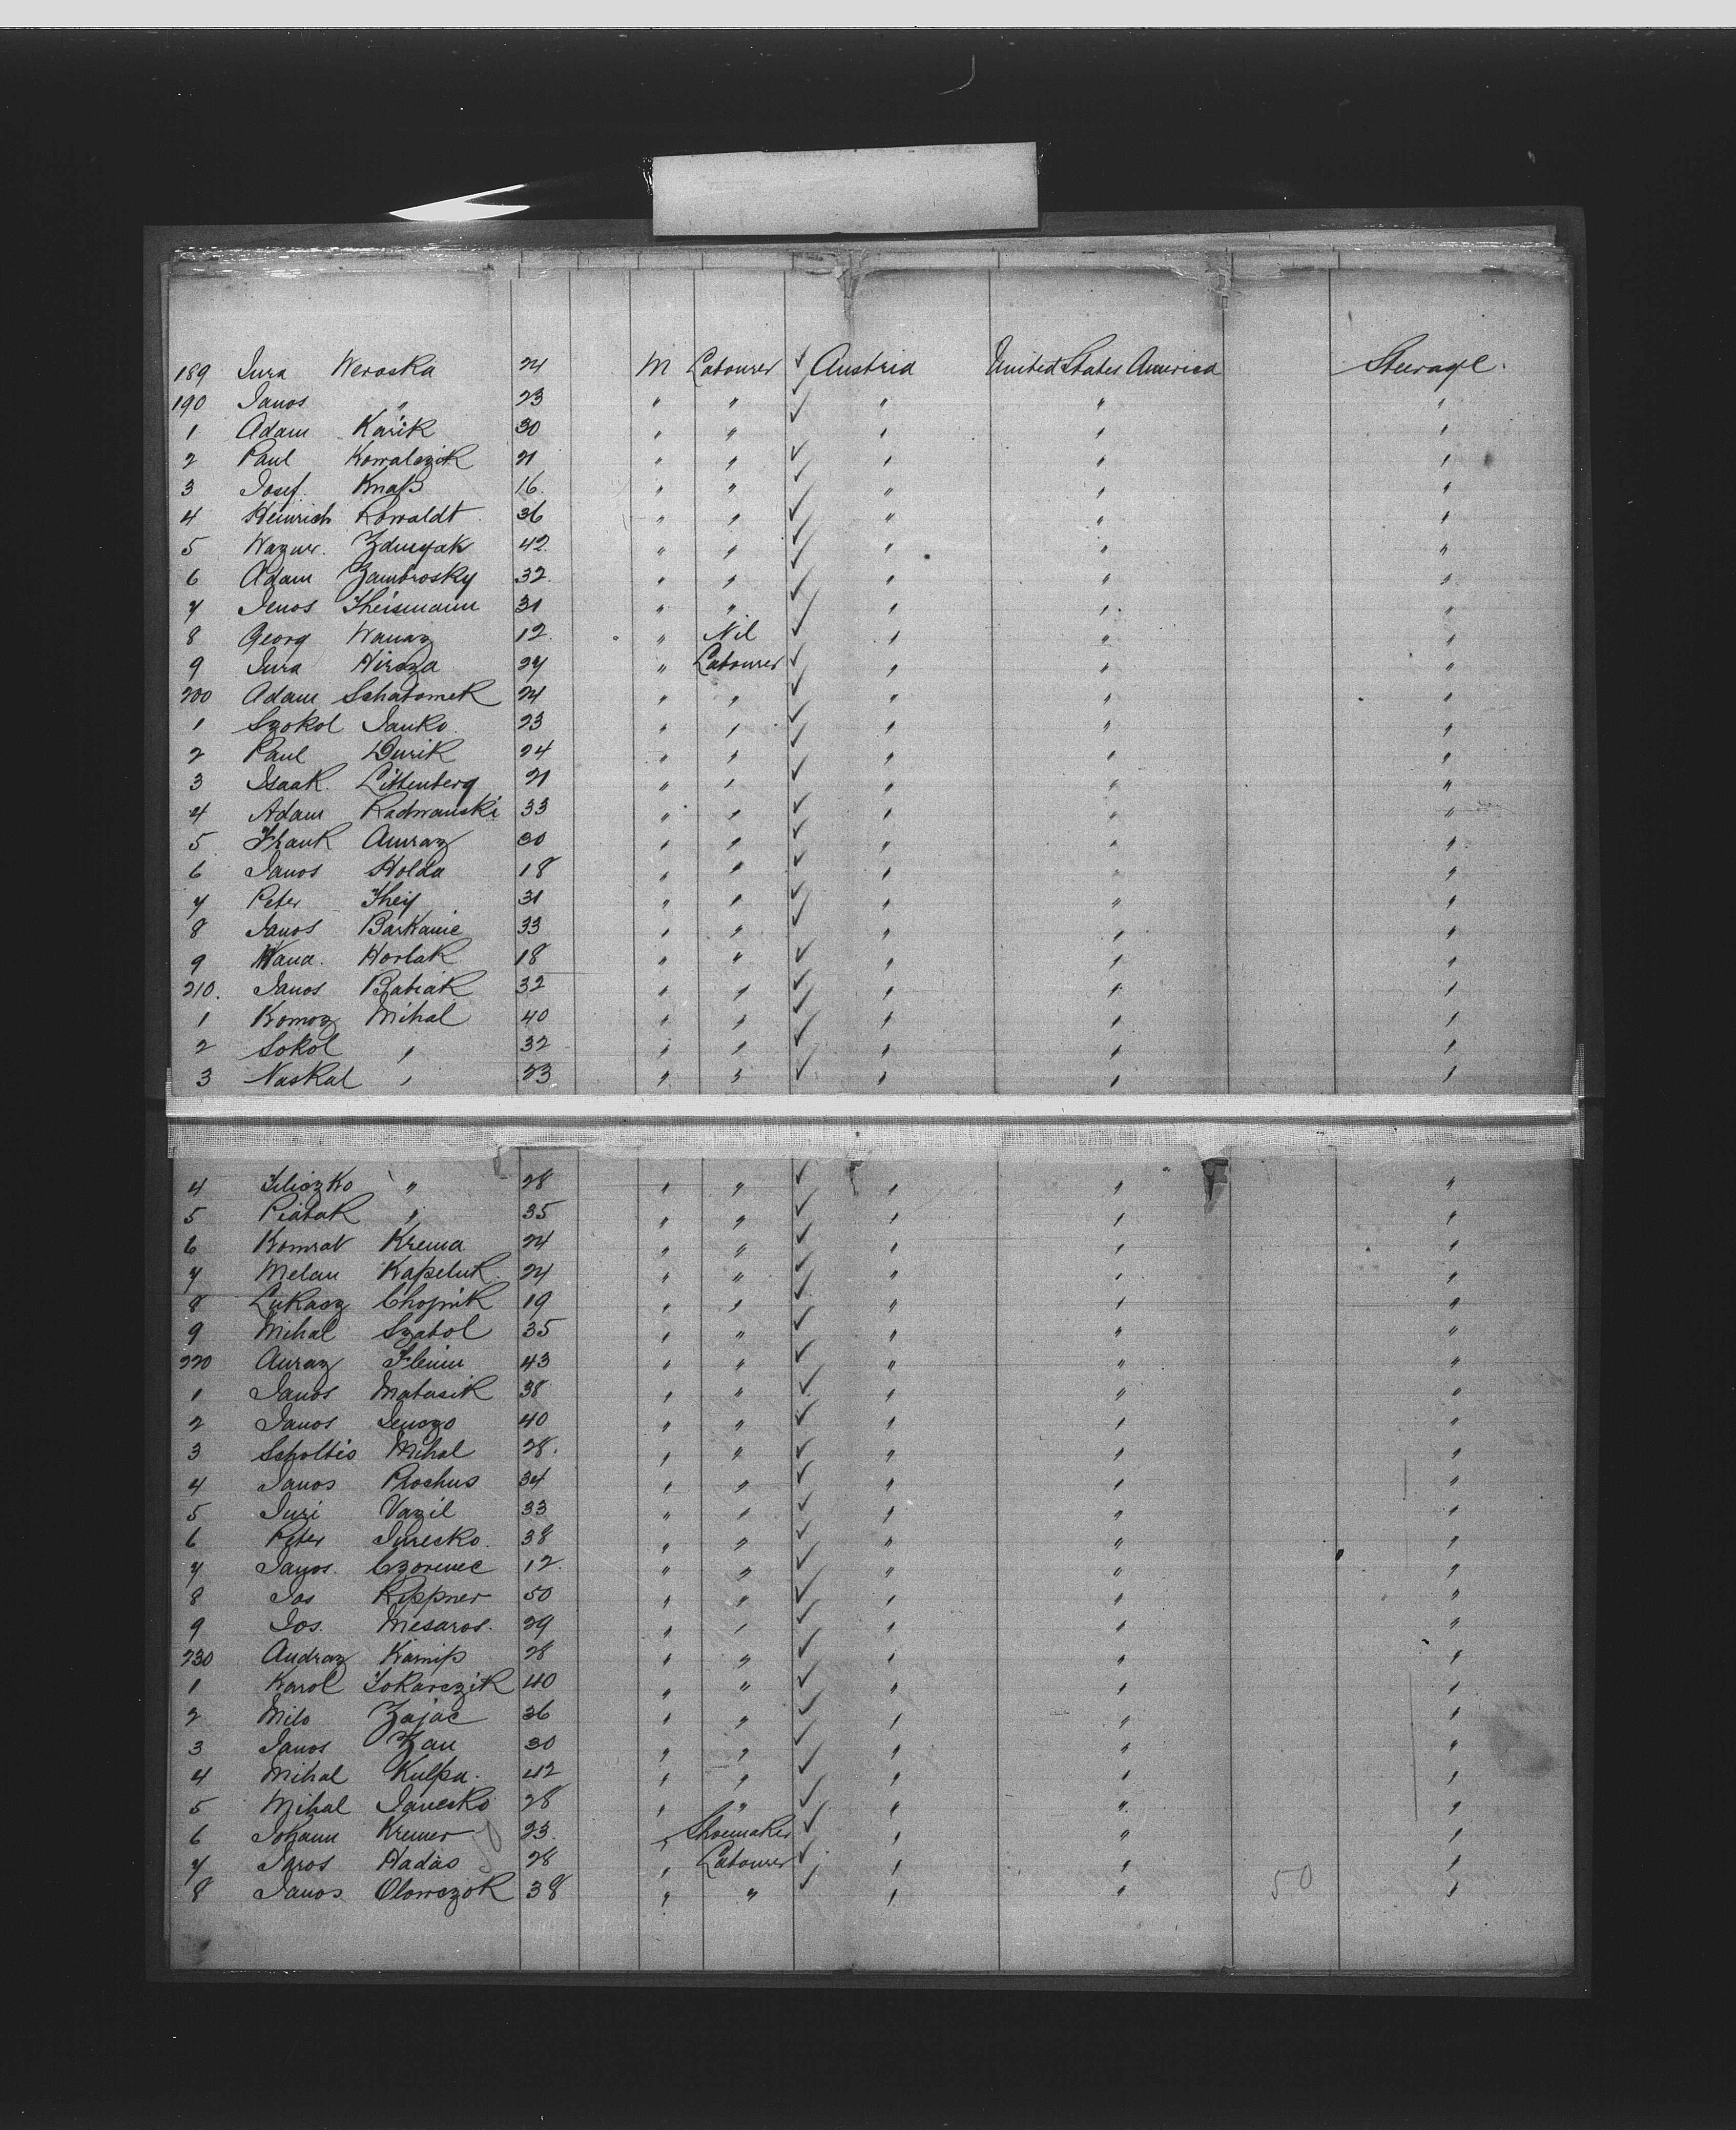 189 Jura Weroska 24 M Labourer ✓ Austria United States America Steerage.
190 Janos " 23 " " ✓ " " "
1 Adam Karik 30 " " ✓ " " "
2 Paul Kowalczik 21 " " ✓ " " "
3 Josef. Knaß 16. " " ✓ " " "
4 Heinrich Kowaldt 36 " " ✓ " " "
5 42. " " ✓ " " "
6 Adam Zambrosky 32. " " ✓ " " "
7 Jenos Theismann 31 " " ✓ " " "
8 Georg Wanaz 12. " Nil ✓ " " "
9 Jura Hirsza 27 " Labourer ✓ " " "
200 Adam Schatomek 24 " " ✓ " " "
1 Szokol Janko 23 " " ✓ " " "
2 Paul Durik 24 " " ✓ " " "
3 Isaak. Littenberg 21 " " ✓ " " "
4 Adam Radwanski 33 " " ✓ " " "
5. Frank Amraz 30 " " ✓ " " "
6 Janos Holda 18 " " ✓ " " "
7 Peter They 31 " " ✓ " " "
8 Janos Barkanie 33 " " ✓ " " "
9 Horlak 18 " " ✓ " " "
210. Janos Babiak 32 " " ✓ " " "
1 Komoz Mihal 40 " " ✓ " " "
2 Sokol " 32 " " ✓ " " "
3 Naskal " 23 " " ✓ " " "
4 " 28 " " ✓ " " "
5 Piatak " 35 " " ✓ " " "
6 Komrat Krema 24 " " ✓ " " "
7 Melan Kapeluk 24 " " ✓ " " "
8 Lukacz Chopnik 19 " " ✓ " " "
9 Mihal Szatol 35 " " ✓ " " "
220 Anraz 43 " " ✓ " " "
1 Janos Matasik 38 " " ✓ " " "
2 Janos Jenczo 40 " " ✓ " " "
3 Scholtis Mihal 28. " " ✓ " " "
4 Janos Prochus 34 " " ✓ " " "
5 Juri Vazil 33 " " ✓ " " "
6 Peter Juresko. 38 " " ✓ " " "
7 Janos. Czormec 12. " " ✓ " " "
8 Jos Keppner 50 " " ✓ " " "
9 Jos. Mesaros. 29 " " ✓ " " "
230 Andraz Karnip 28 " " ✓ " " "
1 Karol Tokarczik 40 " " ✓ " " "
2 Milo Zajac 36 " " ✓ " " "
3 Janos Zau 30 " " ✓ " " "
4 Mihal Kulpa. 42 " " ✓ " " "
5 Mihal Janesko 28 " " ✓ " " "
6 Johann Kremer 23. " Shoemaker ✓ " " "
7 Jaros Hadas 28 " Labourer ✓ " " "
8 Janos Olowczok 38 " " ✓ " " 50 "